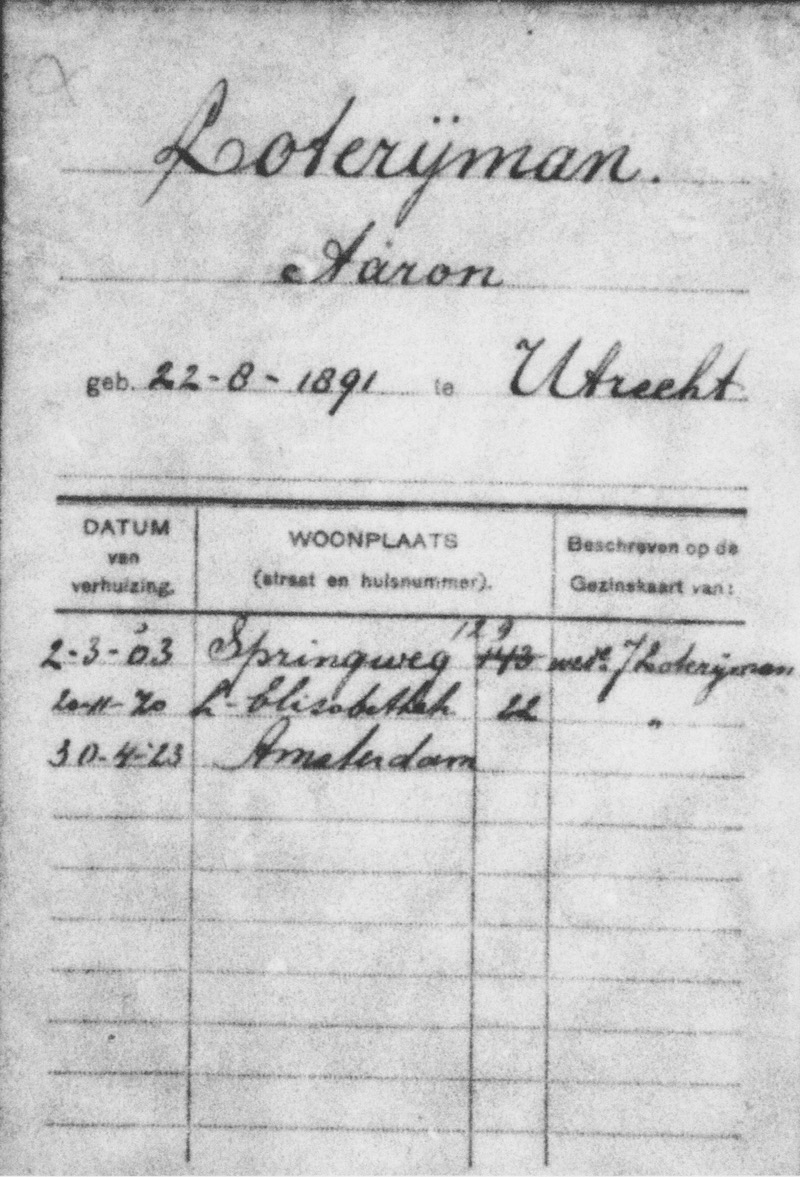 Loterijman.
Aäron
geb. 22-8-1891 te Utrecht
DATUM van verhuizing.
WOONPLAATS (straat en huisnummer).
Beschreven op de Gezinskaart van:
129
2-3-03 Springweg 143 wede. J Loterijman
20-11-20 L-Elisabethstr 22 "
30-4-'23 Amsterdam